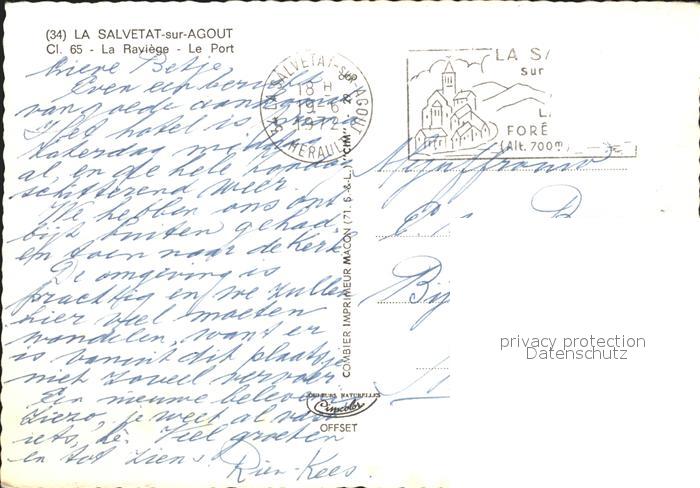 (34) LA SALVETAT-sur-AGOUT
Cl. 65 - La Raviège - Le Port
Lieve Betje,
Even een bericht
van goede aankomst
Het hotel is prima
zaterdag middag
al, en de hele
schitterend weer.
We hebben ons ont
bijt buiten gehad,
en toen naar de kerk
De omgeving is
prachtig en we zullen
hier veel moeten
wandelen, want er
is vanuit dit plaatsje
niet zoveel vervoer
Een nieuwe belevenis
Ziezo, je weet al van
iets, hè. Veel groeten
en tot ziens.
Rien-Kees.
LA SALVETAT-SUR-AGOUT
18 H
19-6
1972
HERAULT
LA SA
sur
LA
FORÊ
(Alt. 700m)
COMBIER IMPRIMEUR MACON (71, S.-&-L.) "CIM"
COULEURS NATURELLES
Cimcolor
OFFSET
Mejuffrouw
Bij
privacy protection
Datenschutz